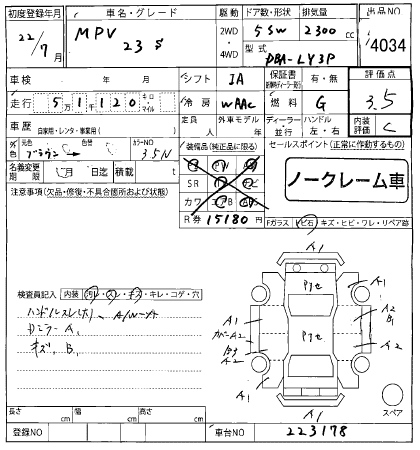 初度登録年月 車名・グレード 駆動 ドア数・形状 排気量 出品NO
22/7月 MPV 23S 2WD・4WD 5 SW 2300 cc 4034
型式 DBA-LY3P
車検 年 月 シフト IA 保証書 有・無 評価点 3.5
走行 51120 キロ マイル 冷房 WAAC 燃料 G 内装評価 C
車歴 自家用・レンタ・事業用( ) 定員 人 外車モデル 年 ディーラー 並行 ハンドル 左・右
色 元色 ブラウン 色替 カラーNO 35N
装備品(純正品に限る) セールスポイント(正常に作動するもの)
名義変更期限 月 日迄 積載 t
SR
カワ
R券 15180円
ノークレーム車
注意事項(欠品・修復・不具合箇所および状態)
Fガラス ヒ石・キズ・ヒビ・ワレ・リペア跡
A1
A1 A1
A1 A2
カバーA2 B1
B3 A2
A2
A1 A1
A1
検査員記入 内装 汚レ・スレ・キズ・キレ・コゲ・穴
ハンドルスレ(大)
Dミラー A1
キズ、B1
スペア
長さ cm 幅 cm 高さ cm
登録NO 車台NO 223178